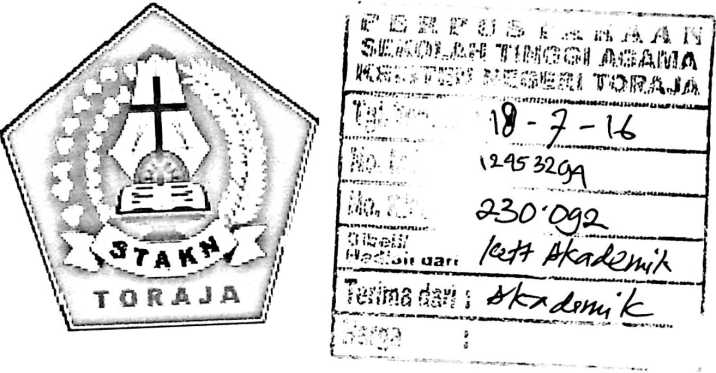 STAKN
TORAJA
PERPUSTAKAAN
SEKOLAH TINGGI AGAMA
KRISTEN NEGERI TORAJA
18-7-16
230.092
Hadiah dari
Akademik
Terima dari : Akademik
Harga :